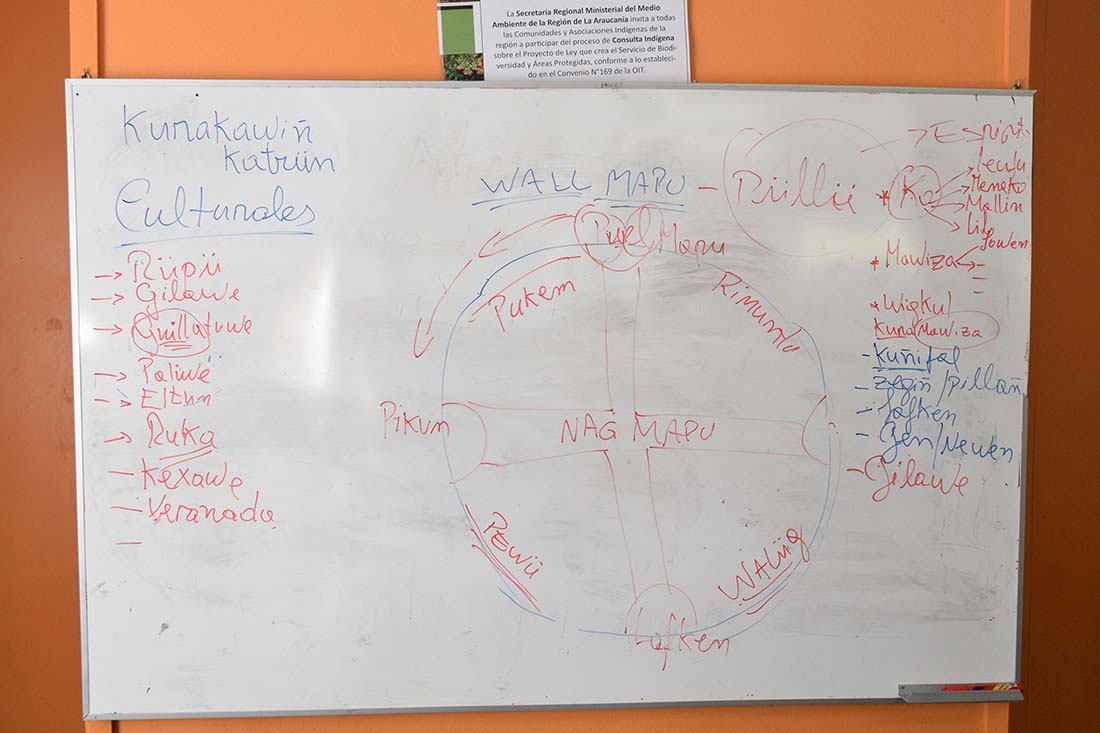 La Secretaría Regional Ministerial del Medio
Ambiente de la Región de La Araucanía invita a todas
las Comunidades y Asociaciones Indígenas de la
región a participar del proceso de Consulta Indígena
sobre el Proyecto de Ley que crea el Servicio de Biodi-
versidad y Áreas Protegidas, conforme a lo estableci-
do en el Convenio N°169 de la OIT.
Kurakawiñ
Katrün
Culturales
→ Rüpü
→ Gilawe
→ Guillatuwe
→ Paliwe
→ Eltun
→ Ruka
— Kexawe
— Veranada
—
WALL MAPU - Püllü
Puel Mapu
Pukem
Rimundu
Pikun
NAG MAPU
PEWÜ
WALÜG
Lafken
→ Espirit.
* Ko
Leufu
Menoko
Mallin
* Mawiza
Lawen
* Wigkul
Kuna Mawiza
- Kuñifal
- Zegiñ/Pillañ
- Lafken
- Gen/Newen
- Gilawe